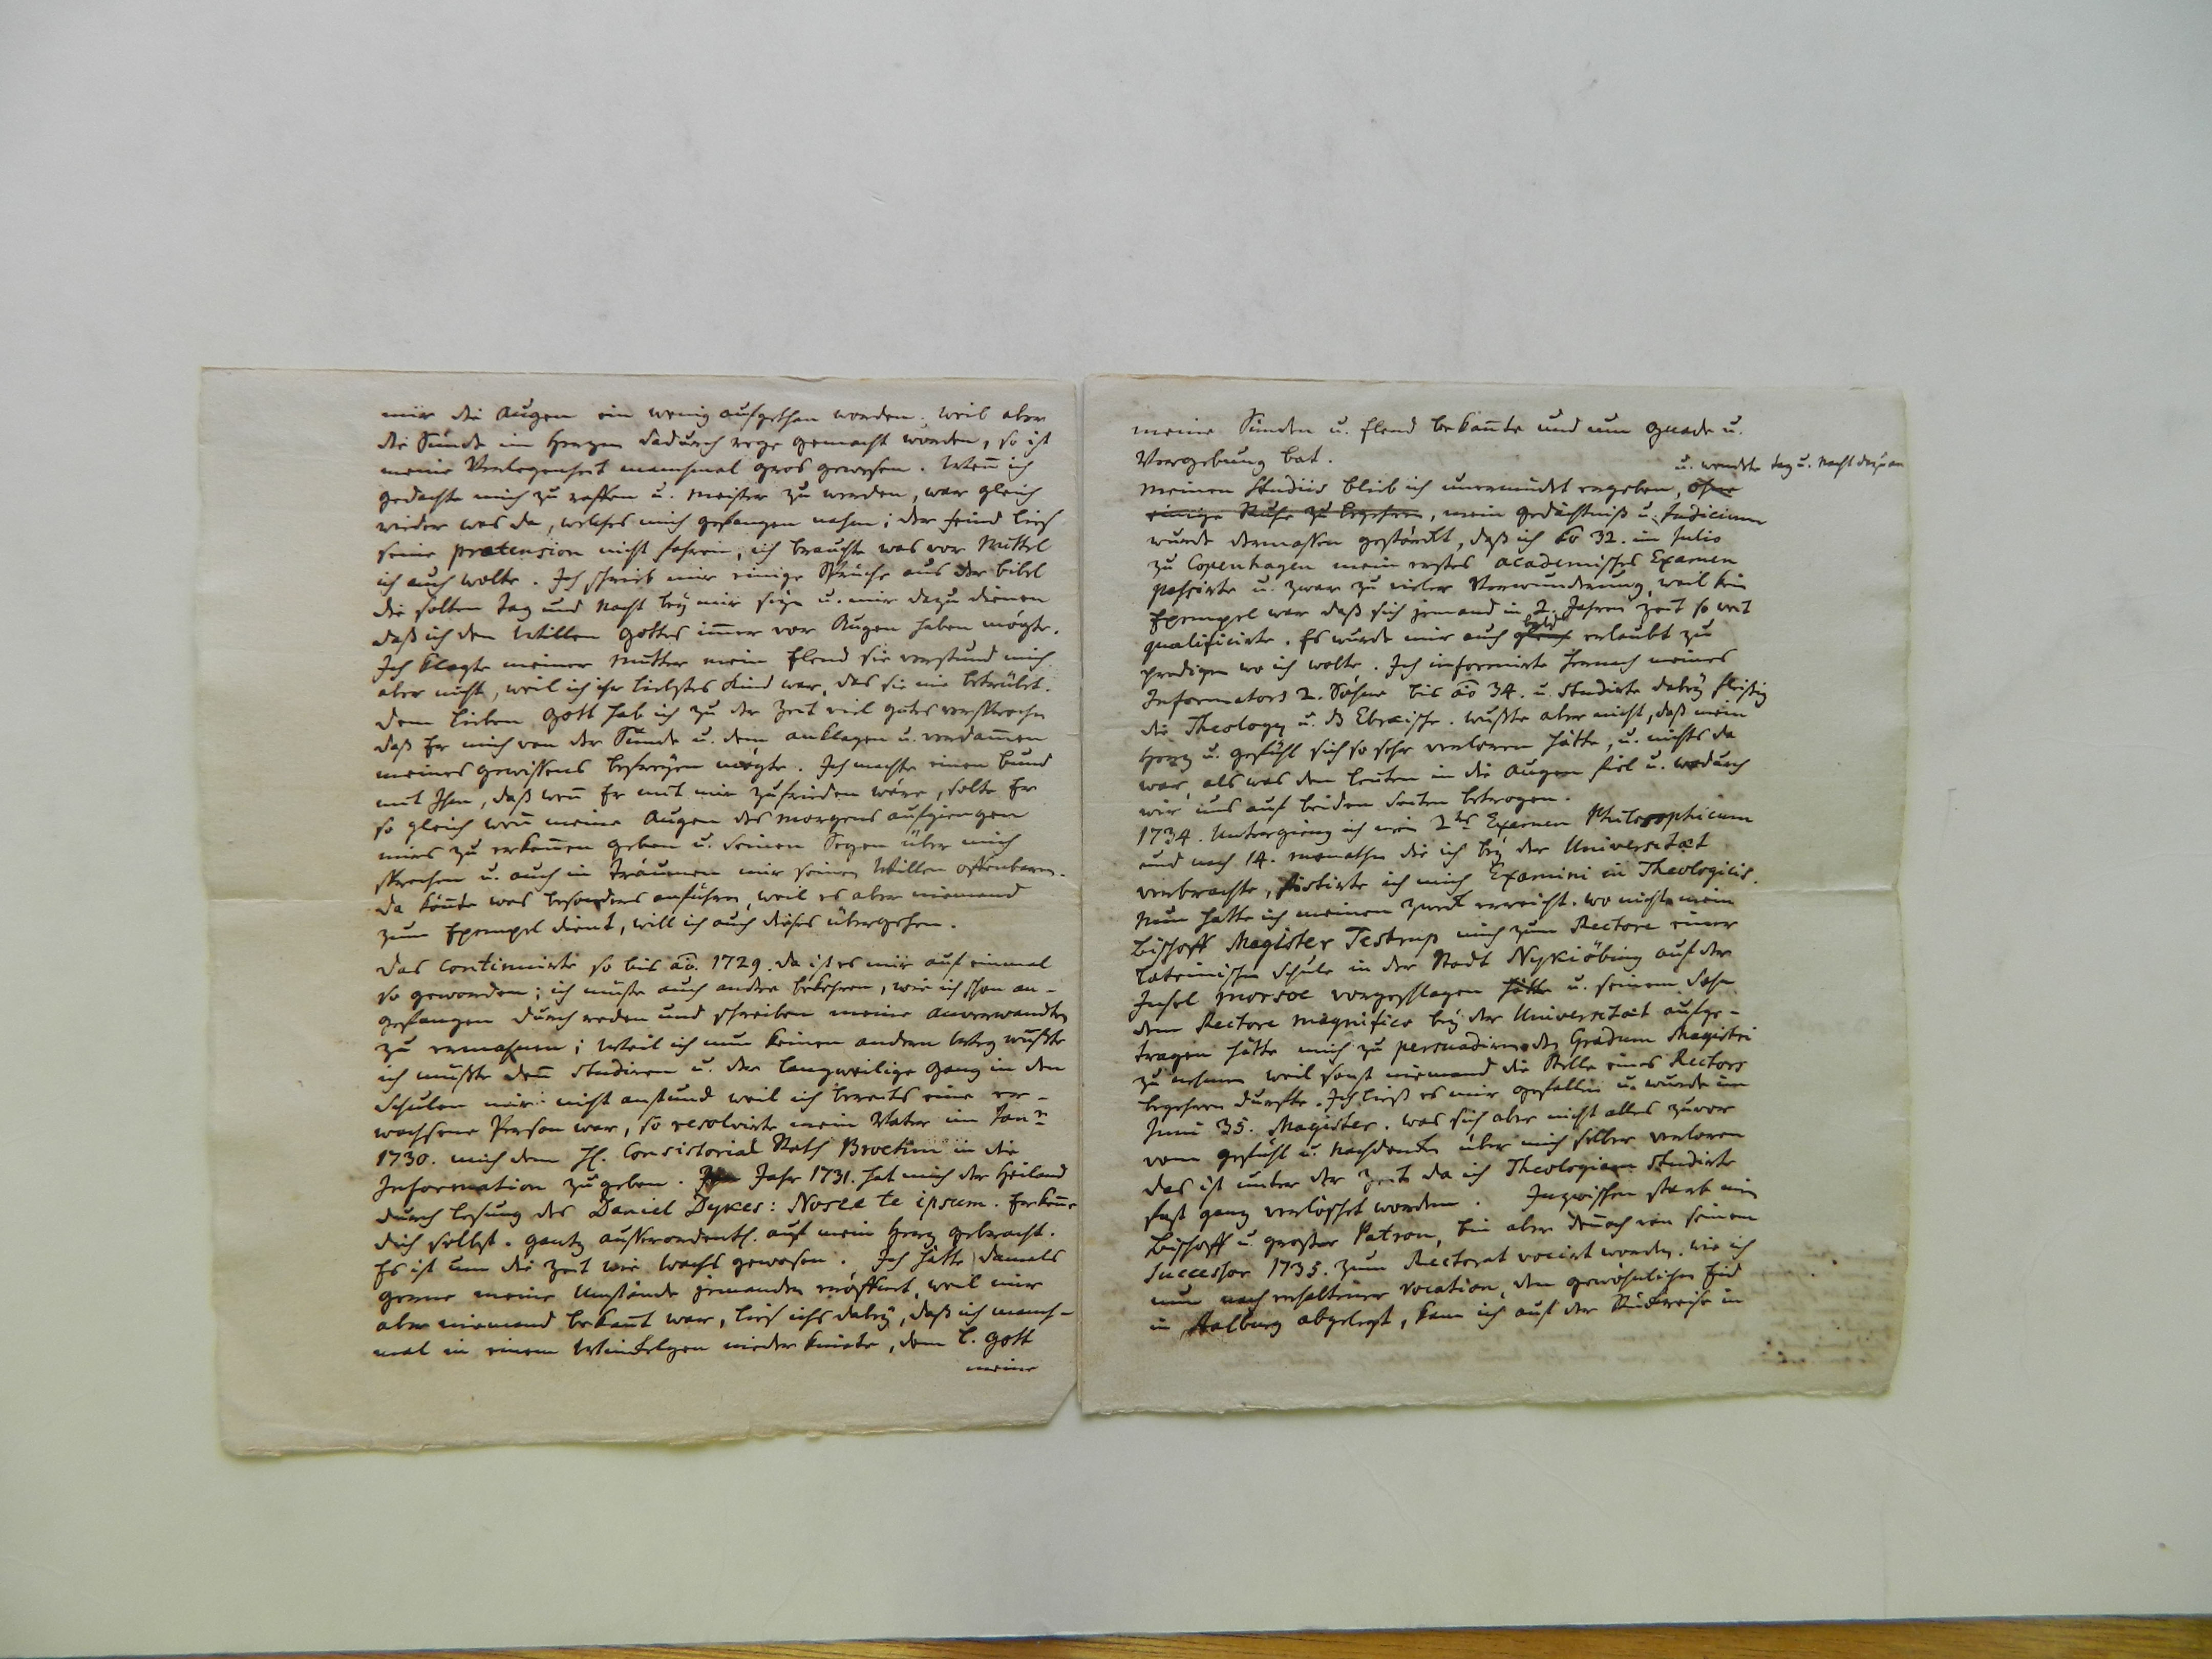 mir die Augen ein wenig aufgethan worden. weil aber
die Sünde im Herzen dadurch rege gemacht worden, so ist
meine Verlegenheit manchmal gros gewesen. Wen̄ ich
gedachte mich zu raffen u. Meister zu werden, war gleich
wieder was da, welches mich gefangen nahm; der Feind lies
seine prætension nicht fahren, ich brauchte was vor Mittel
ich auch wolte. Ich schrieb mir einige Sprüche aus der Bibel
die solten Tag und Nacht bey mir seyn u. mir dazu dienen
daß ich den Willen Gottes im̄er vor Augen haben mögte.
Ich klagte meiner Mutter mein Elend sie verstund mich
aber nicht, weil ich ihr liebstes Kind war, das sie nie betrübt.
dem lieben Gott hab ich zu der Zeit viel gutes versprochen
daß Er mich von der Sünde u. dem anklagen u. verdam̄en
meines gewissens befreyen mögte. Ich machte einen Bund
mit Ihm, daß wen̄ Er mit mir zufrieden wäre, solte Er
so gleich wen̄ meine Augen des Morgens aufgiengen
mirs zu erken̄en geben u. seinen Segen über mich
sprechen u. auch in Träumen mir seinen Willen offenbaren.
da kön̄te was besonders anführen, weil es aber niemand
zum Exempel dient, will ich auch dieses übergehen.
Das continuirte so bis ao̅. 1729. da ist es mir auf einmal
so geworden; ich müste auch andre bekehren, wie ich schon an-
gefangen durch reden und schreiben meine Anverwandten
zu ermahnen; Weil ich nun keinen andern Weg wußte
ich müßte den̄ studiren u. der langweilige Gang in den
Schulen mir nicht anstund weil ich bereits eine er-
wachsene Person war, so resolvirte mein Vater im Jan:
1730. mich dem H. Consistorial Rath Broctun in die
Information zu geben. Im Jahr 1731. hat mich der Heiland
durch lesung des Daniel Dykes: Nosce te ipsum. Erken̄e
dich selbst. gantz ausserordentl. auf mein Herz gebracht.
Es ist um die Zeit wie Wachs gewesen. Ich hätte damals
gerne meine Umstände jemanden eröffnet, weil mir
aber niemand bekan̄t war, lies ichs dabey, daß ich manch-
mal in einem Winkelgen nieder kniete, dem l. Gott
meine
meine Sünden u. Elend bekan̄te und um Gnade u.
Vergebung bat.
u. wendete Tag u. Nacht drauf an
Meinen Studiis blieb ich unermüdet ergeben, ohne
einige Ruhe zu begehren, mein Gedächtniß u. Judicium
wurde dermassen gestärckt, daß ich ao 32. im Julio
zu Copenhagen mein erstes academisches Examen
passirte u. zwar zu vieler Verwunderung, weil kein
Exempel war daß sich jemand in 2. Jahren Zeit so weit
qualificirte. Es wurde mir auch gleich bald erlaubt zu
predigen wo ich wolte. Ich informirte hernach meines
Informators 2. Söhne bis ao̅ 34. u. studirte dabey fleißig
die Theologie u. ds Ebræische. wußte aber nicht, daß mein
Herz u. gefühl sich so sehr verloren hätte, u. nichts da
war, als was den leuten in die Augen fiel u. wodurch
wir uns auf beiden Seiten betrogen.
1734. Untergieng ich mein 2tes Examen Philosophicum
und nach 14. monathen die ich bey der Universitæt
verbrachte, sistirte ich mich Examini in Theologicis.
Nun hatte ich meinen Zweck erreicht. wo nicht mein
Bischoff Magister Testrup mich zum Rectore einer
lateinischen Schule in der Stadt Nykiöbing auf der
Insel Morsoe vorgeschlagen hätte u. seinem Sohn
dem Rectore magnifico bey der Universitæt aufge-
tragen hätte mich zu persuadiren den Gradum Magistri
zu nehmen weil sonst niemand die Stelle eines Rectors
begehren durfte. Ich ließ es mir gefallen u. wurde im
Juni 35. Magister. was sich aber nicht alles zuvor
vom gefühl u. Nachdencken über mich selber verloren
das ist unter der Zeit da ich Theologiam studirte
fast ganz verlöschet worden. Inzwischen starb mein
Bischoff u. großer Patron, bin aber den̄och von seinem
Successor 1735. zum Rectorat vocirt worden. wie ich
nun nach erhaltener Vocation, den gewöhnlichen Eid
in Aalburg abgelegt, kam ich auf der Rückreise in